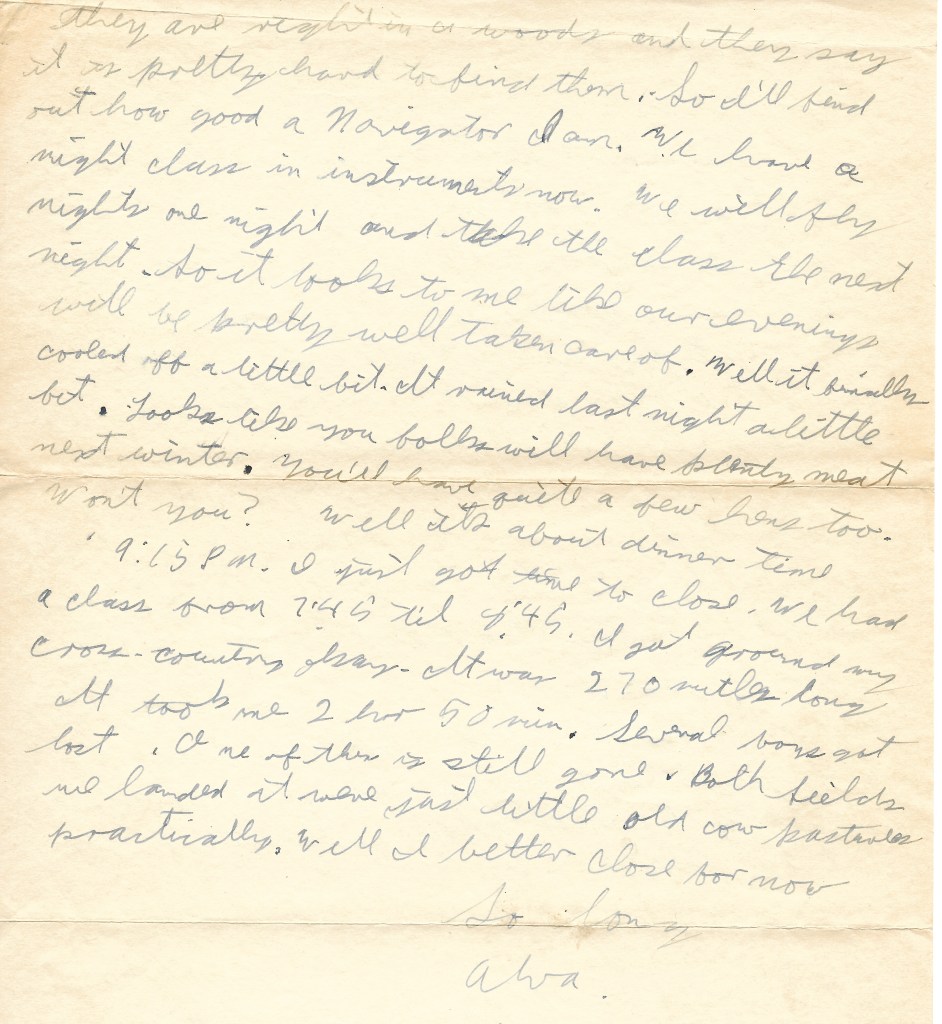 they are right in a woods and they say
it is pretty hard to find them. So I'll find
out how good a Navigator I am. We have a
night class in instruments now. We will fly
nights one night and take the class the next
night. So it looks to me like our evenings
will be pretty well taken care of. Well it finally
cooled off a little bit. It rained last night a little
bit. Looks like you folks will have plenty meat
next winter. You'll have quite a few hens too.
Wont you? Well it's about dinner time
9:15 P.M. I just got time to close. We had
a class from 7:45 til 9:45. I got around my
cross-country okay. It was 270 miles long
It took me 2 hrs 50 min. Several boys got
lost. One of them is still gone. Both fields
we landed at were just little old cow pastures
practically. Well I better close for now
So long
Alva.